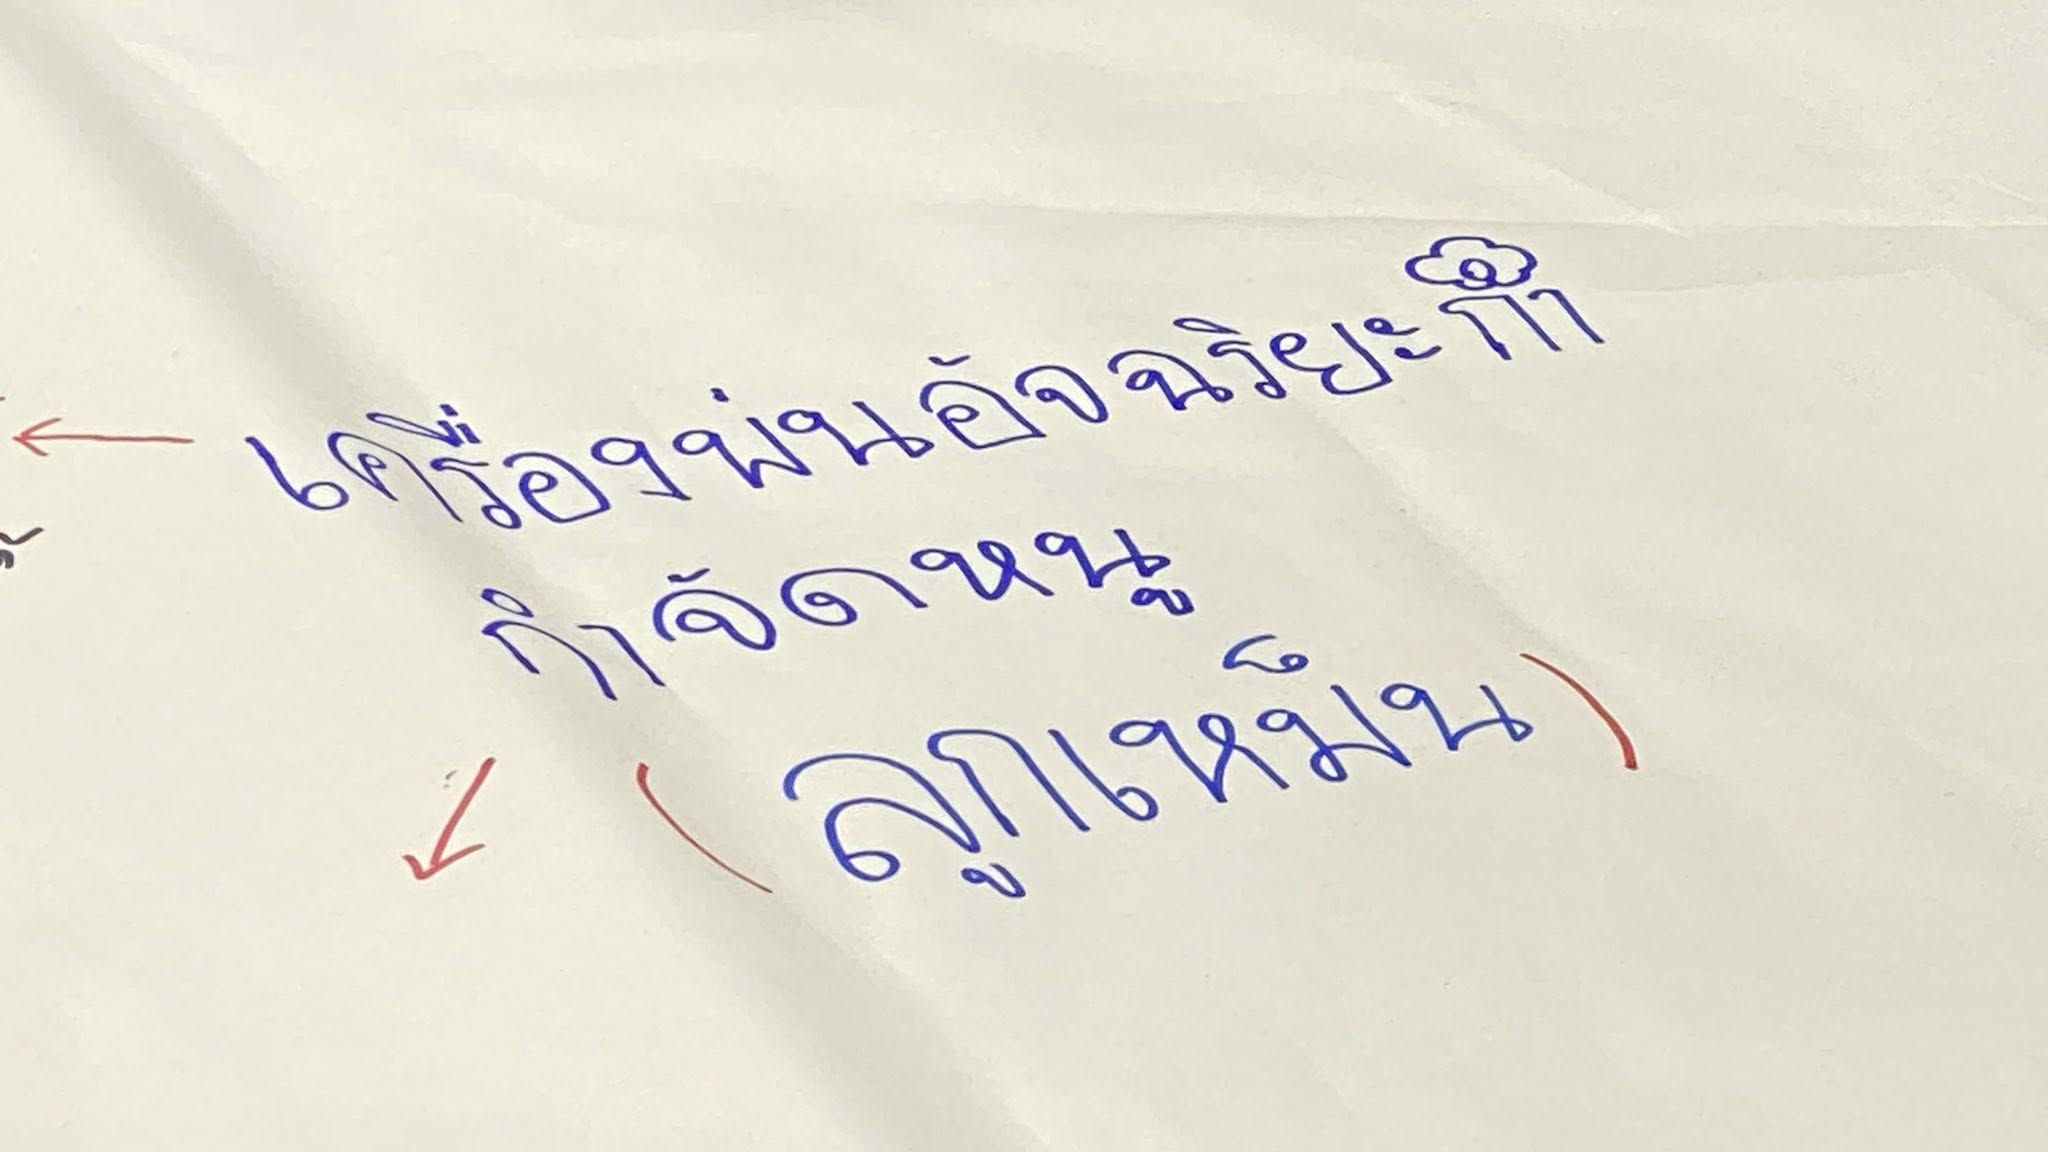 เครื่องพ่นอัจฉริยะกำ
กำจัดหนู
(ลูกเหม็น)